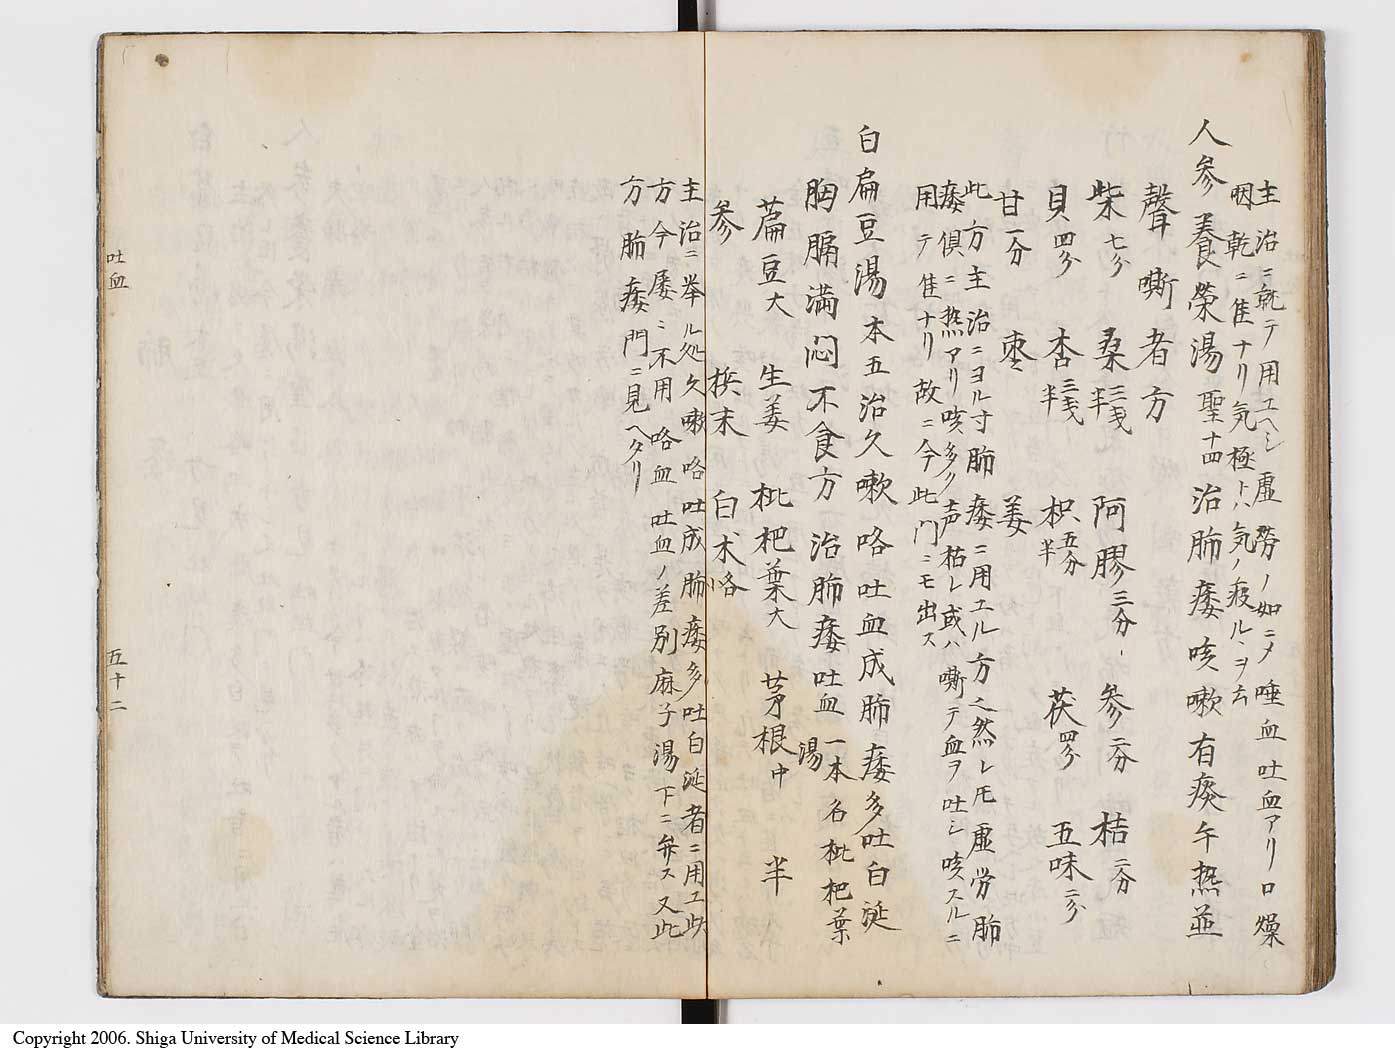 主治ニ就テ用ユヘシ虚勞ノ如ニメ唾血吐血アリ口燥
咽乾ニ隹ナリ気極トハ気ノ疲ルヽヲ云
人参養榮湯聖十四治肺痿咳嗽有痰午熱並
聲嘶者方
柴七分 桑三戋半 阿膠三分 参二分 桔二分
貝四分 杏三戋半 枳五分半 茯四分 五味二分
甘一分 枣 姜
此方主治ニヨル寸肺痿ニ用エル方之然レ𪜈虚労肺
痿倶ニ熱アリ咳多ク声枯レ或ハ嘶テ血ヲ吐シ咳スルニ
用テ隹ナリ故ニ今此門ニモ出ス
白扁豆湯本五治久嗽咯吐血成肺痿多吐白涎
胸膈満悶不食方一治肺痿吐血一本名枇杷葉湯
萹豆大 生姜 枇杷葉大 茅根中 半
参 梹末 白朮咯
主治ニ举ル処久嗽咯吐成肺痿多吐白涎者ニ用エ此
方今屡ミ不用咯血吐血ノ差別麻子湯下ニ弁ス又此
方肺痿門ニ見ヘタリ
吐血
五十二
Copyright 2006. Shiga University of Medical Science Library